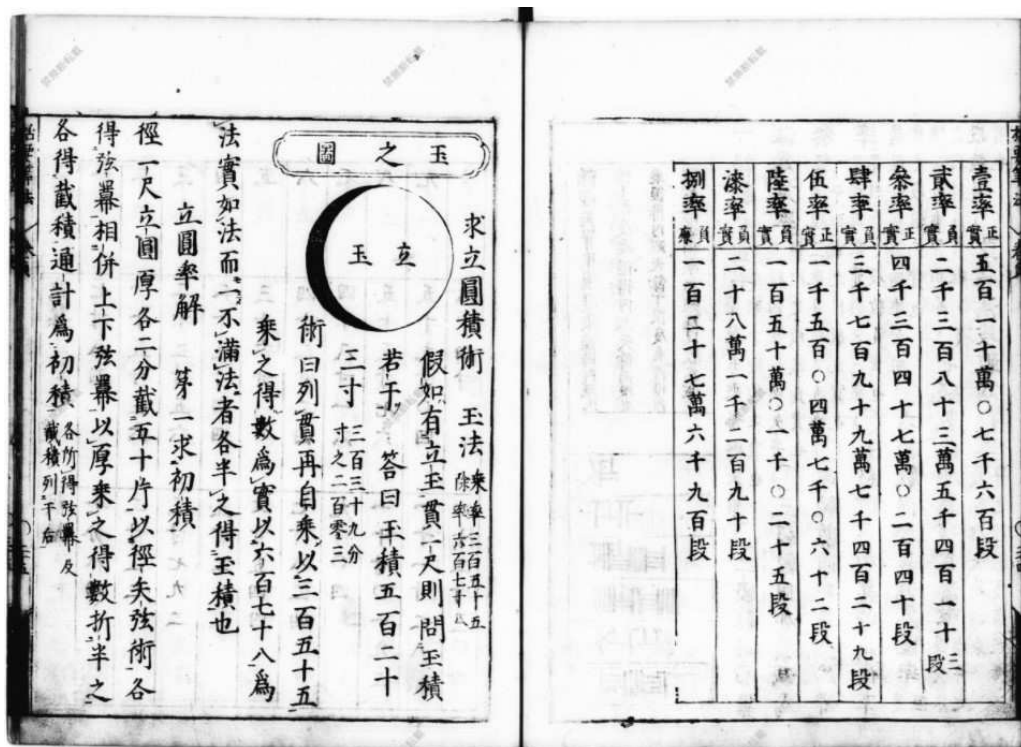 壹率 正實 五百一十萬〇七千六百段
貳率 負實 二千三百八十三萬五千四百一十三段
參率 正實 四千三百四十七萬〇二百四十段
肆率 負實 三千七百九十九萬七千四百二十九段
伍率 正實 一千五百〇四萬七千〇六十二段
陸率 負實 一百五十萬〇一千〇二十五段
漆率 負實 二十八萬一千二百九十段
捌率 一百二十七萬六千九百段
玉之圖
立玉
求立圓積術 玉法 乘率三百五十五
假如有立玉貫一尺則問玉積
若干 答曰玉積五百二十
三寸 三百三十九分
寸之二百零三
術曰列貫再自乘以三百五十五
乘之得數爲實以六百七十八爲
法實如法而一不滿法者各半之得玉積也
立圓率解 第一求初積
徑一尺立圓厚各二分截五十片以徑矢弦術各
得弦冪相併上下弦冪以厚乘之得數折半之
各得截積通計爲初積 各所得弦冪及
截積列于右
禁無断転載
禁無断転載
禁無断転載